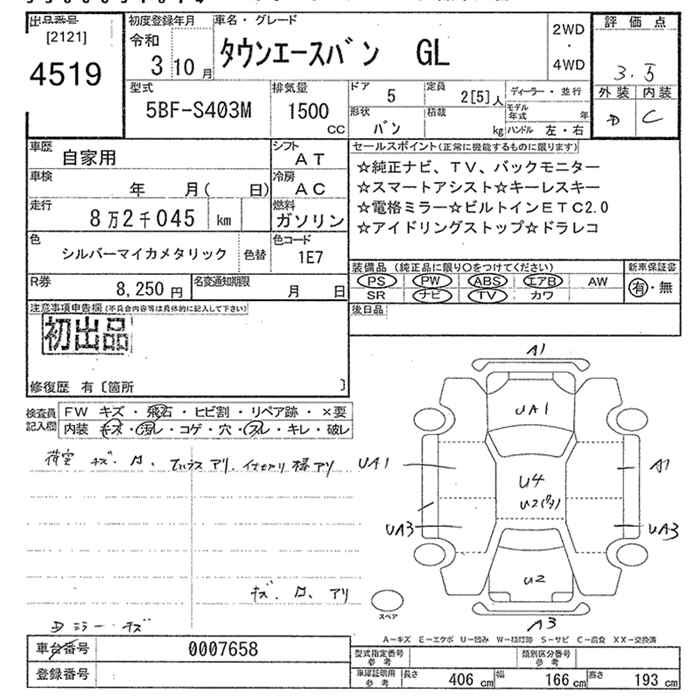 出品番号
[2121]
4519
初度登録年月
令和
3 10月
車名・グレード
タウンエースバン GL
2WD
・
4WD
評価点
3.5
外装 内装
D C
型式
5BF-S403M
排気量
1500
CC
ドア
5
定員
2[5]人
ディーラー・並行
形状
バン
積載
kg
モデル年式
年
ハンドル 左・右
車歴
自家用
シフト
AT
セールスポイント(正常に機能するものに限ります)
☆純正ナビ、TV、バックモニター
☆スマートアシスト☆キーレスキー
☆電格ミラー☆ビルトインETC2.0
☆アイドリングストップ☆ドラレコ
車検
年 月( 日)
冷房
AC
走行
8万2千045 km
燃料
ガソリン
色
シルバーマイカメタリック
色替
色コード
1E7
装備品(純正品に限り○をつけてください)
PS PW ABS エアB AW
SR ナビ TV カワ
新車保証書
有・無
R券
8,250円
名変通知期限
月 日
後日品
注意事項申告欄(不具合内容等は具体的に記入して下さい)
初出品
修復歴 有〔箇所 〕
検査員記入欄
FW キズ・飛石・ヒビ割・リペア跡・×要
内装 キズ・汚レ・コゲ・穴・スレ・キレ・破レ
荷室 キズ・凹、
キズ、凹、アリ
Dミラー・キズ
A1
UA1
UA1
A1
U4
U2
UA3
UA3
U2
A3
スペア
A-キズ E-エクボ U-凹み W-補修跡 S-サビ C-腐食 XX-交換済
車台番号
0007658
登録番号
型式指定番号
参考
類別区分番号
参考
車庫証明用
参考
長さ
406 cm
幅
166 cm
高さ
193 cm